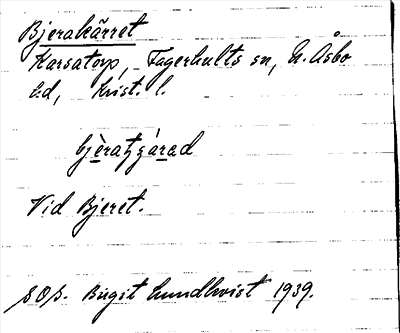 Bjerakärret
Karsatorp, Fagerhults sn, N. Åsbo
hd, Krist. l.
Vid Bjeret.
SOS. Birgit Lundkvist 1939.